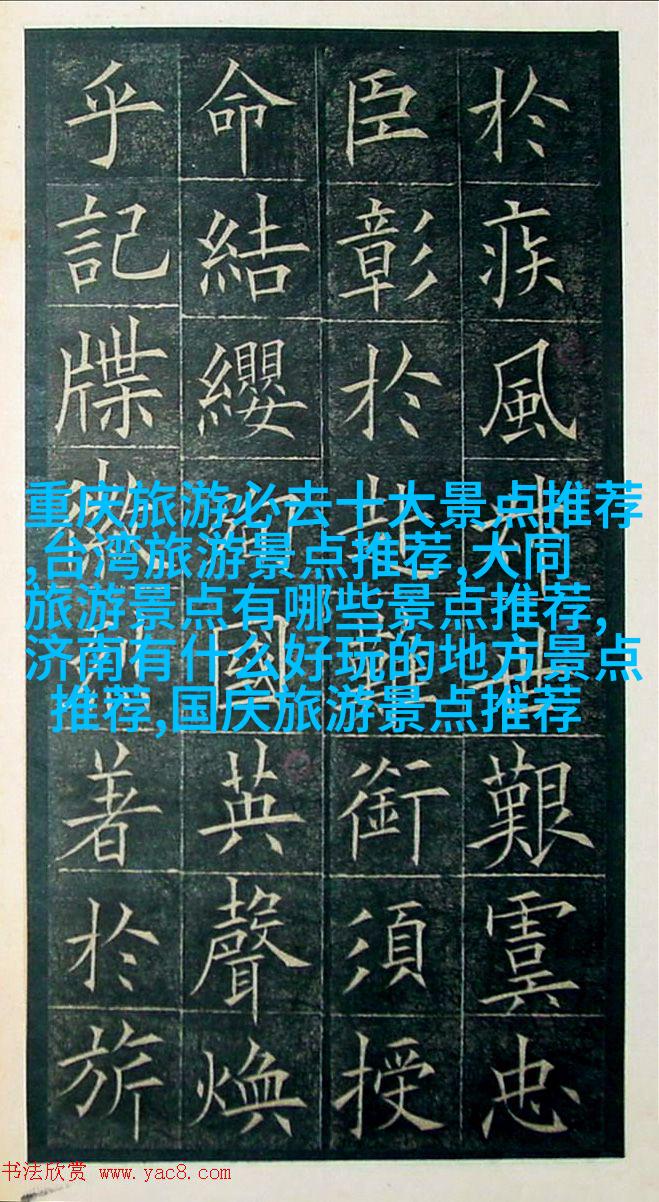 於疾風叔世艱虞忠
臣彰於赴難銜須授
命結纓殉國英聲煥
乎記牒徽烈著於旂
重庆旅游必去十大景点推荐
,台湾旅游景点推荐,大同
旅游景点有哪些景点推荐,
济南有什么好玩的地方景点
推荐,国庆旅游景点推荐
书法欣赏 www.yac8.com